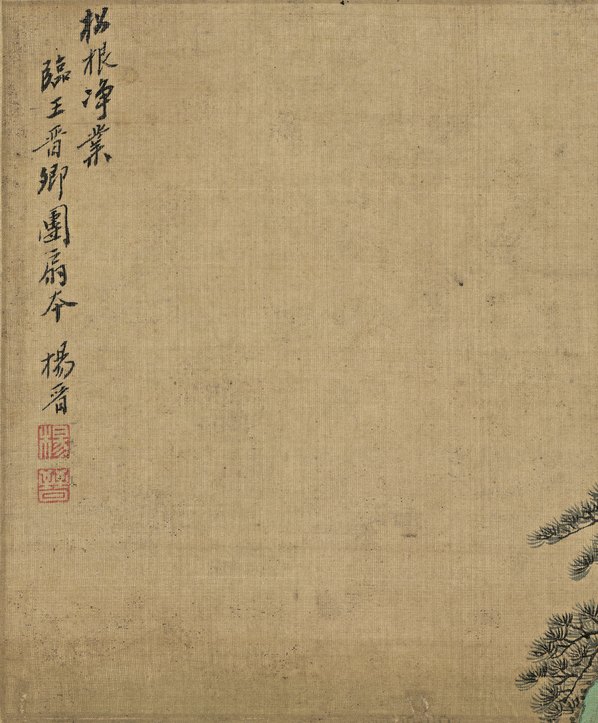 松根净業
臨王晋卿團扇本 楊晋
楊
晉